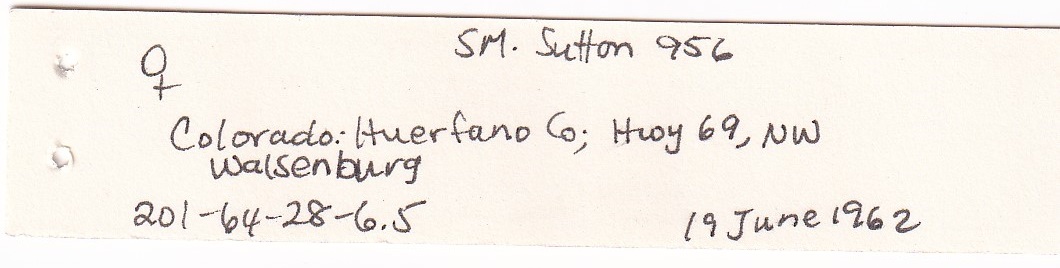 ♀ SM. Sutton 956
Colorado: Huerfano Co; Hwy 69, NW
Walsenburg
201-64-28-6.5 19 June 1962